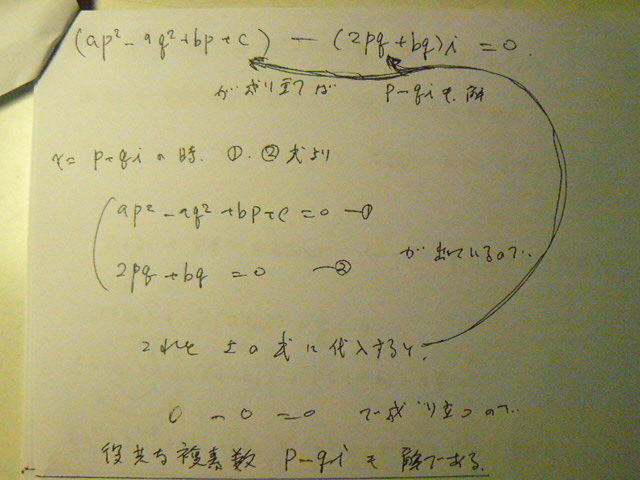 (ap²-aq²+bp+c) - (2pq+bq)i = 0.
が成り立てば p-qiも解
x= p+qi の時. ①.②式より
ap²-aq²+bp+c=0 -①
2pq+bq =0 -②
が出ているので..
これを 上の式に代入すると.
0 - 0 = 0 で成り立つので..
役共な複素数 p-qi も 解である.